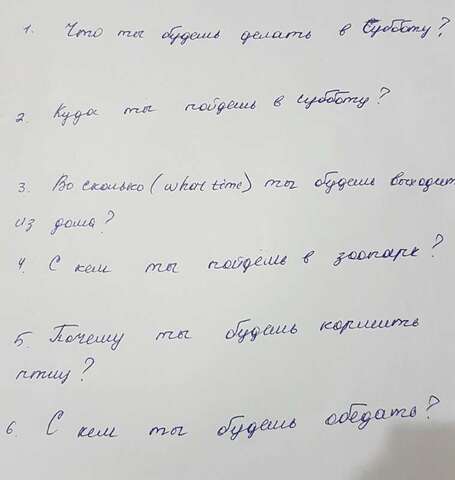 1. Что ты будешь делать в Субботу?
2. Куда ты пойдёшь в субботу?
3. Во сколько (what time) ты будешь выходит
из дома?
4. С кем ты пойдёшь в зоопарк?
5. Почему ты будешь кормить
птиц?
6. С кем ты будешь обедать?